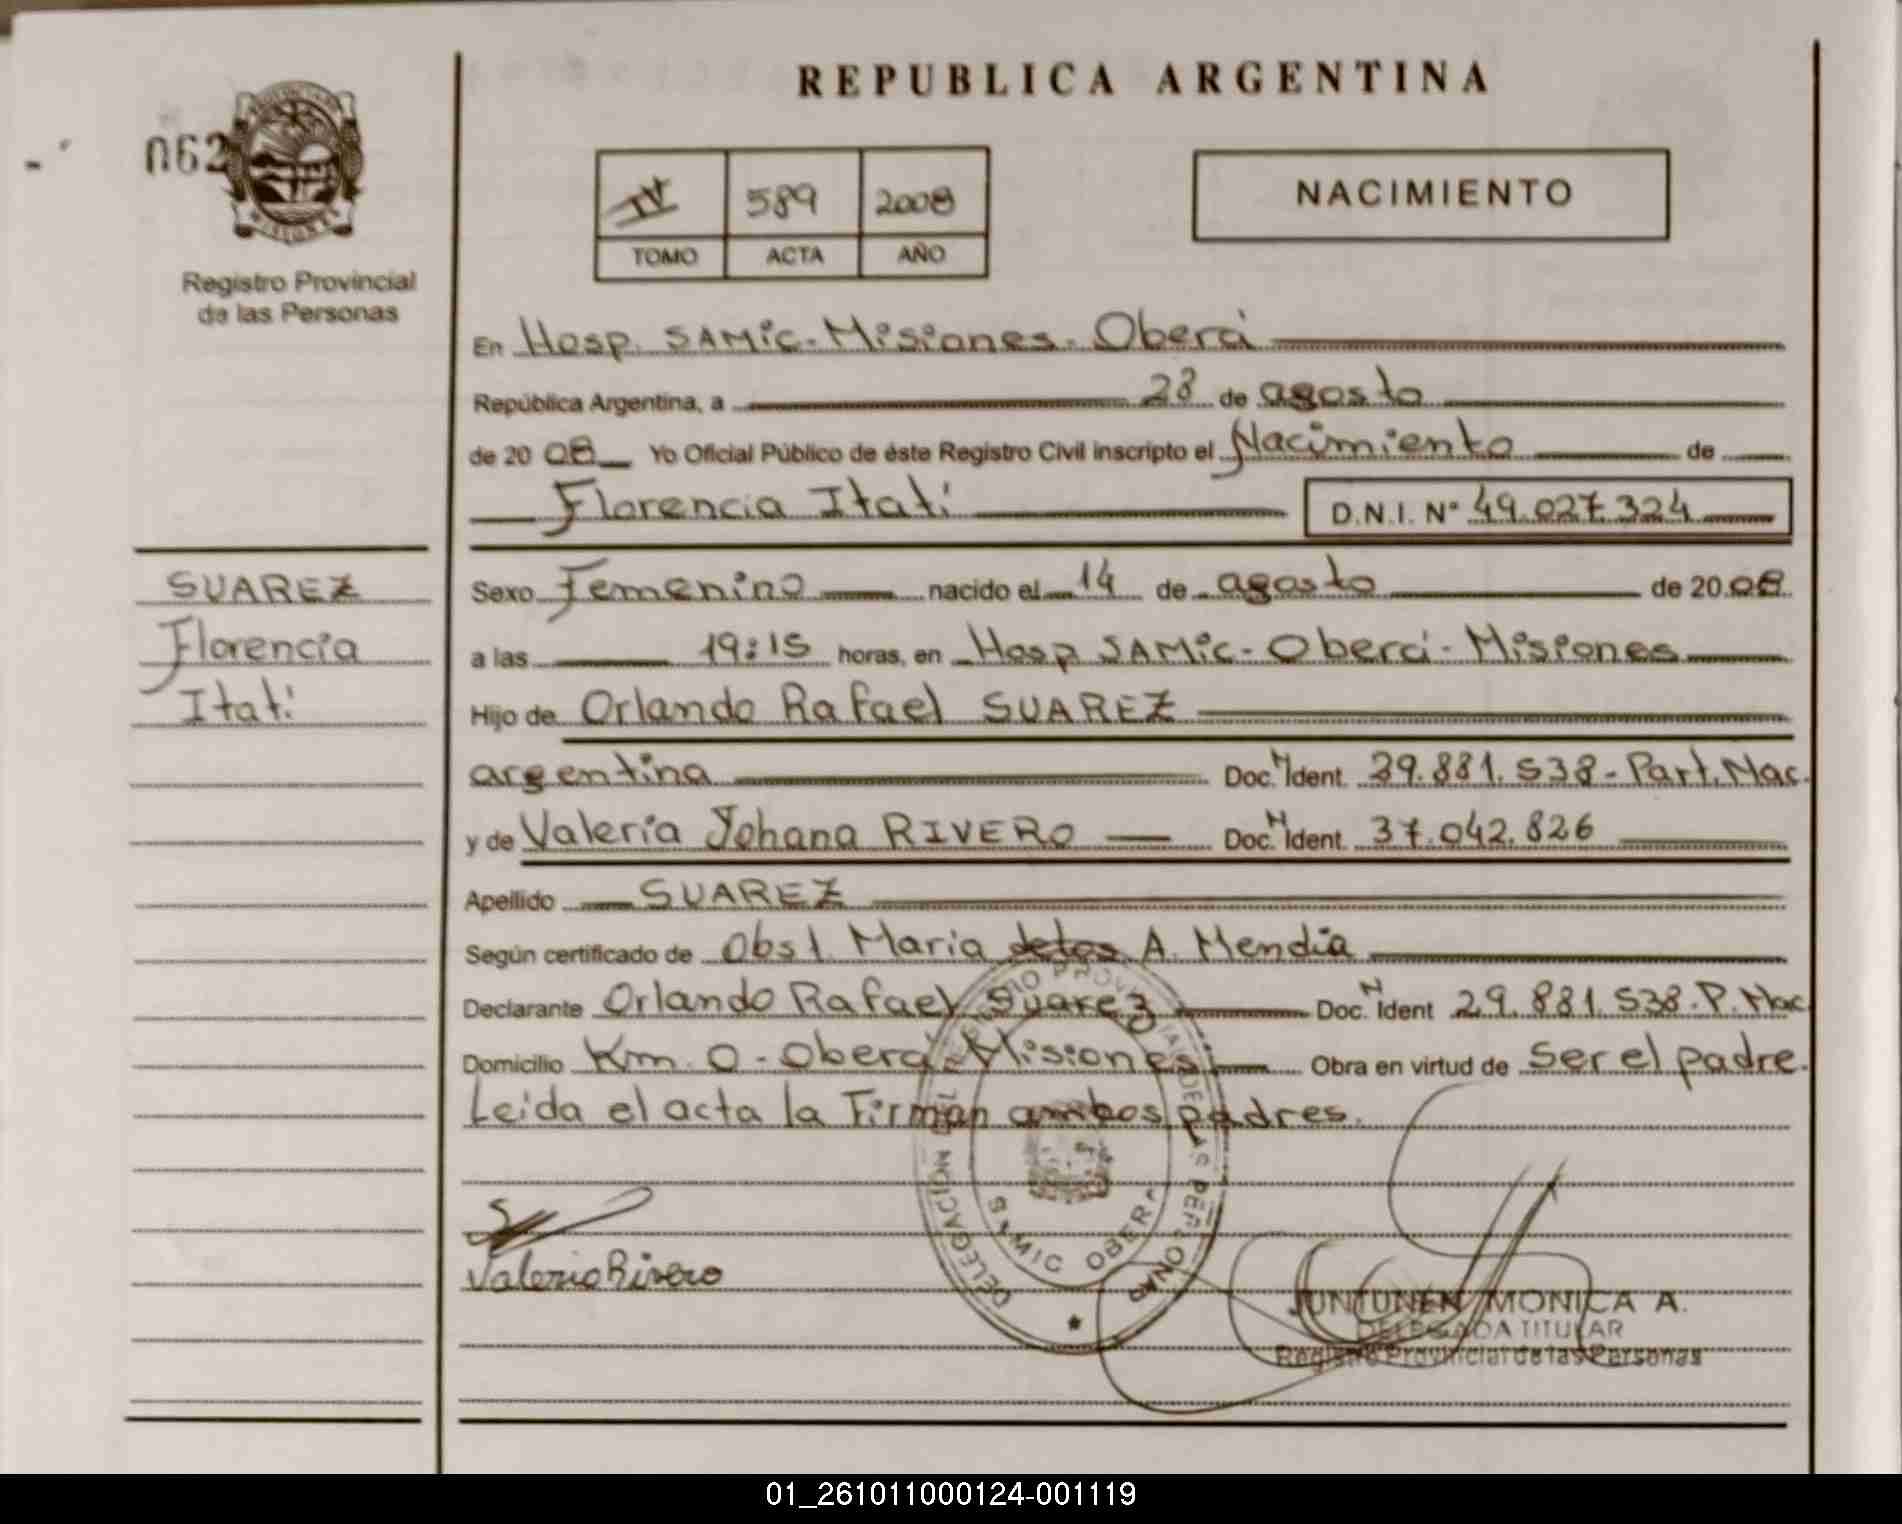 REPUBLICA ARGENTINA
062
IV 589 2008
TOMO ACTA AÑO
NACIMIENTO
Registro Provincial
de las Personas
En Hosp. SAMic-Misiones-Oberá
República Argentina, a 28 de agosto
de 2008 Yo Oficial Público de éste Registro Civil inscripto el Nacimiento de
Florencia Itatí D.N.I. N° 49.027.324
SUAREZ
Florencia
Itatí
Sexo Femenino nacido el 14 de agosto de 2008
a las 19:15 horas, en Hosp SAMic-Oberá-Misiones
Hijo de Orlando Rafael SUAREZ
argentina Doc. N Ident. 29.881.538-Part.Nac.
y de Valeria Johana RIVERO Doc. N Ident. 37.042.826
Apellido SUAREZ
Según certificado de Obst. Maria A. Mendia
Declarante Orlando Rafael Suarez Doc. N Ident 29.881.538-P.Nac
Domicilio Km. 0-Oberá Misiones Obra en virtud de ser el padre.
Leida el acta la Firman ambos padres.
DELEGACION DEL REGISTRO PROVINCIAL DE LAS PERSONAS
SAMIC OBERA
Valeria Rivero
JUNTUNEN MONICA A.
DELEGADA TITULAR
Registro Provincial de las Personas
01_261011000124-001119